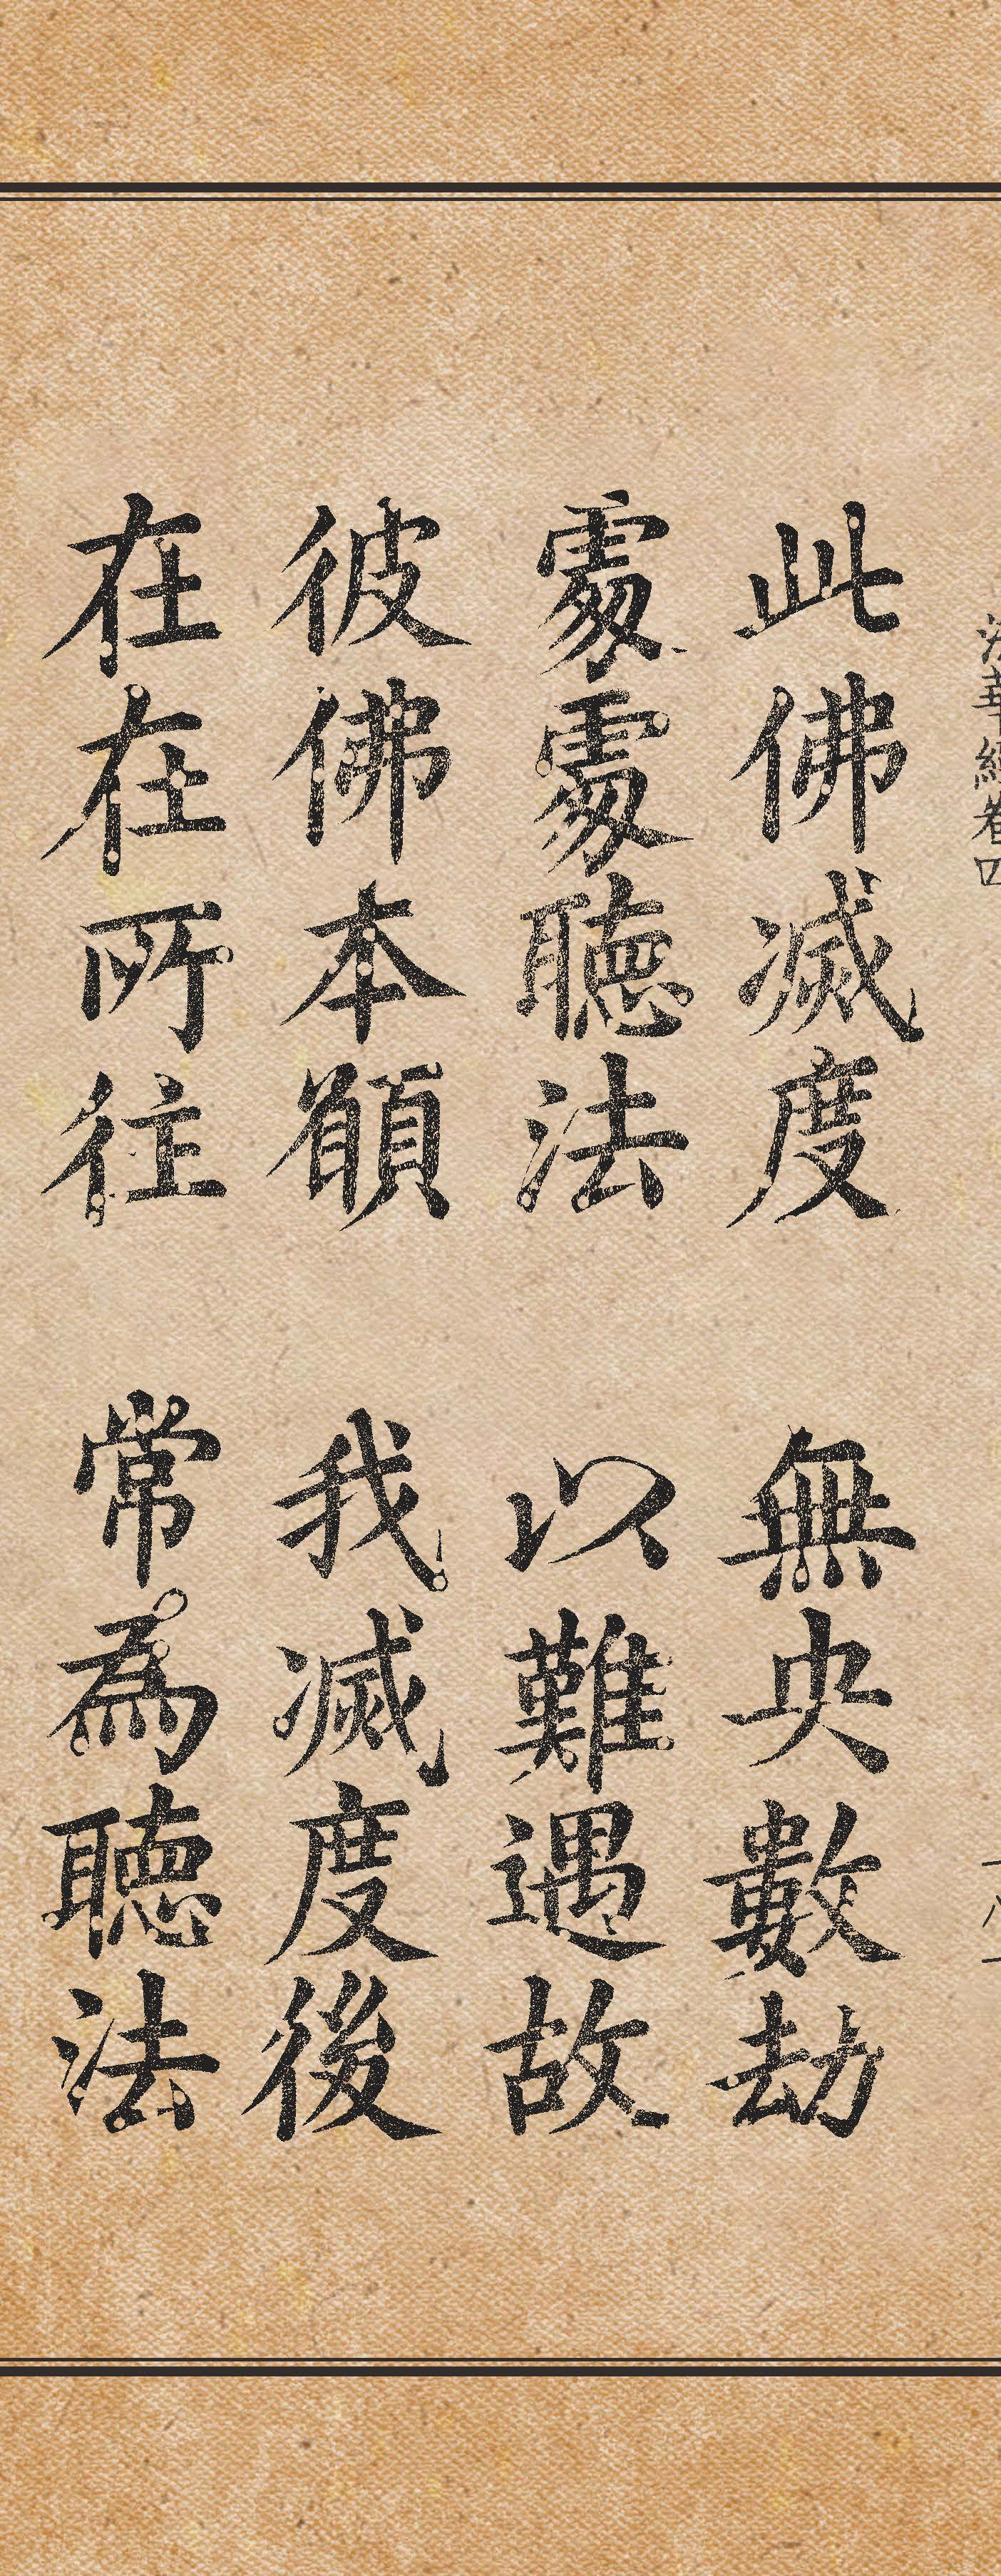 法華經卷四
此佛滅度　無央數劫
處處聽法　以難遇故
彼佛本願　我滅度後
在在所往　常為聽法